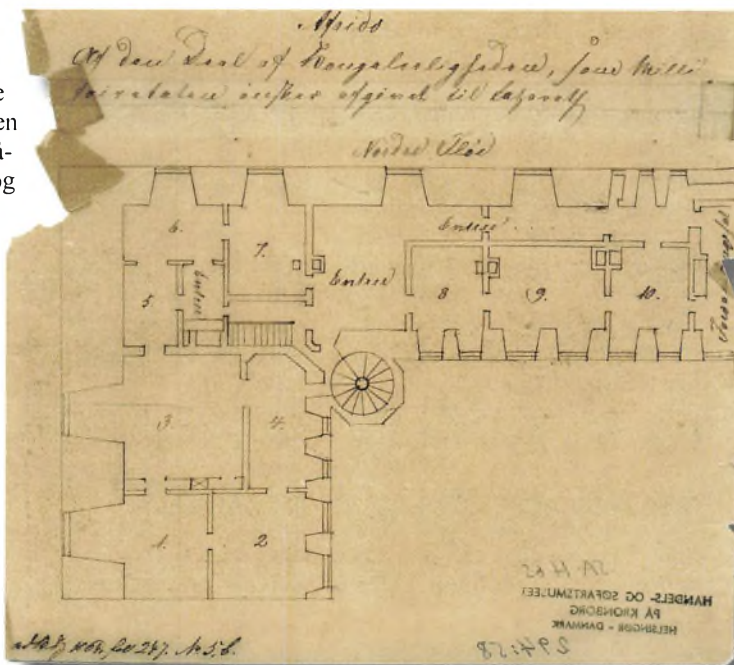 en
å-
og
Afrids
Af den Deel af Kongeleiligheden, som Milli-
tairetaten ønsker afgivet til Lazareth
Nordre Fløi
6.
7.
Entree
Entree
Entree
5
8
9.
10.
3
4.
1.
2
HANDELS- OG SØFARTSMUSEET
PÅ KRONBORG
HELSINGØR - DANMARK
294:58
No. 5, b.